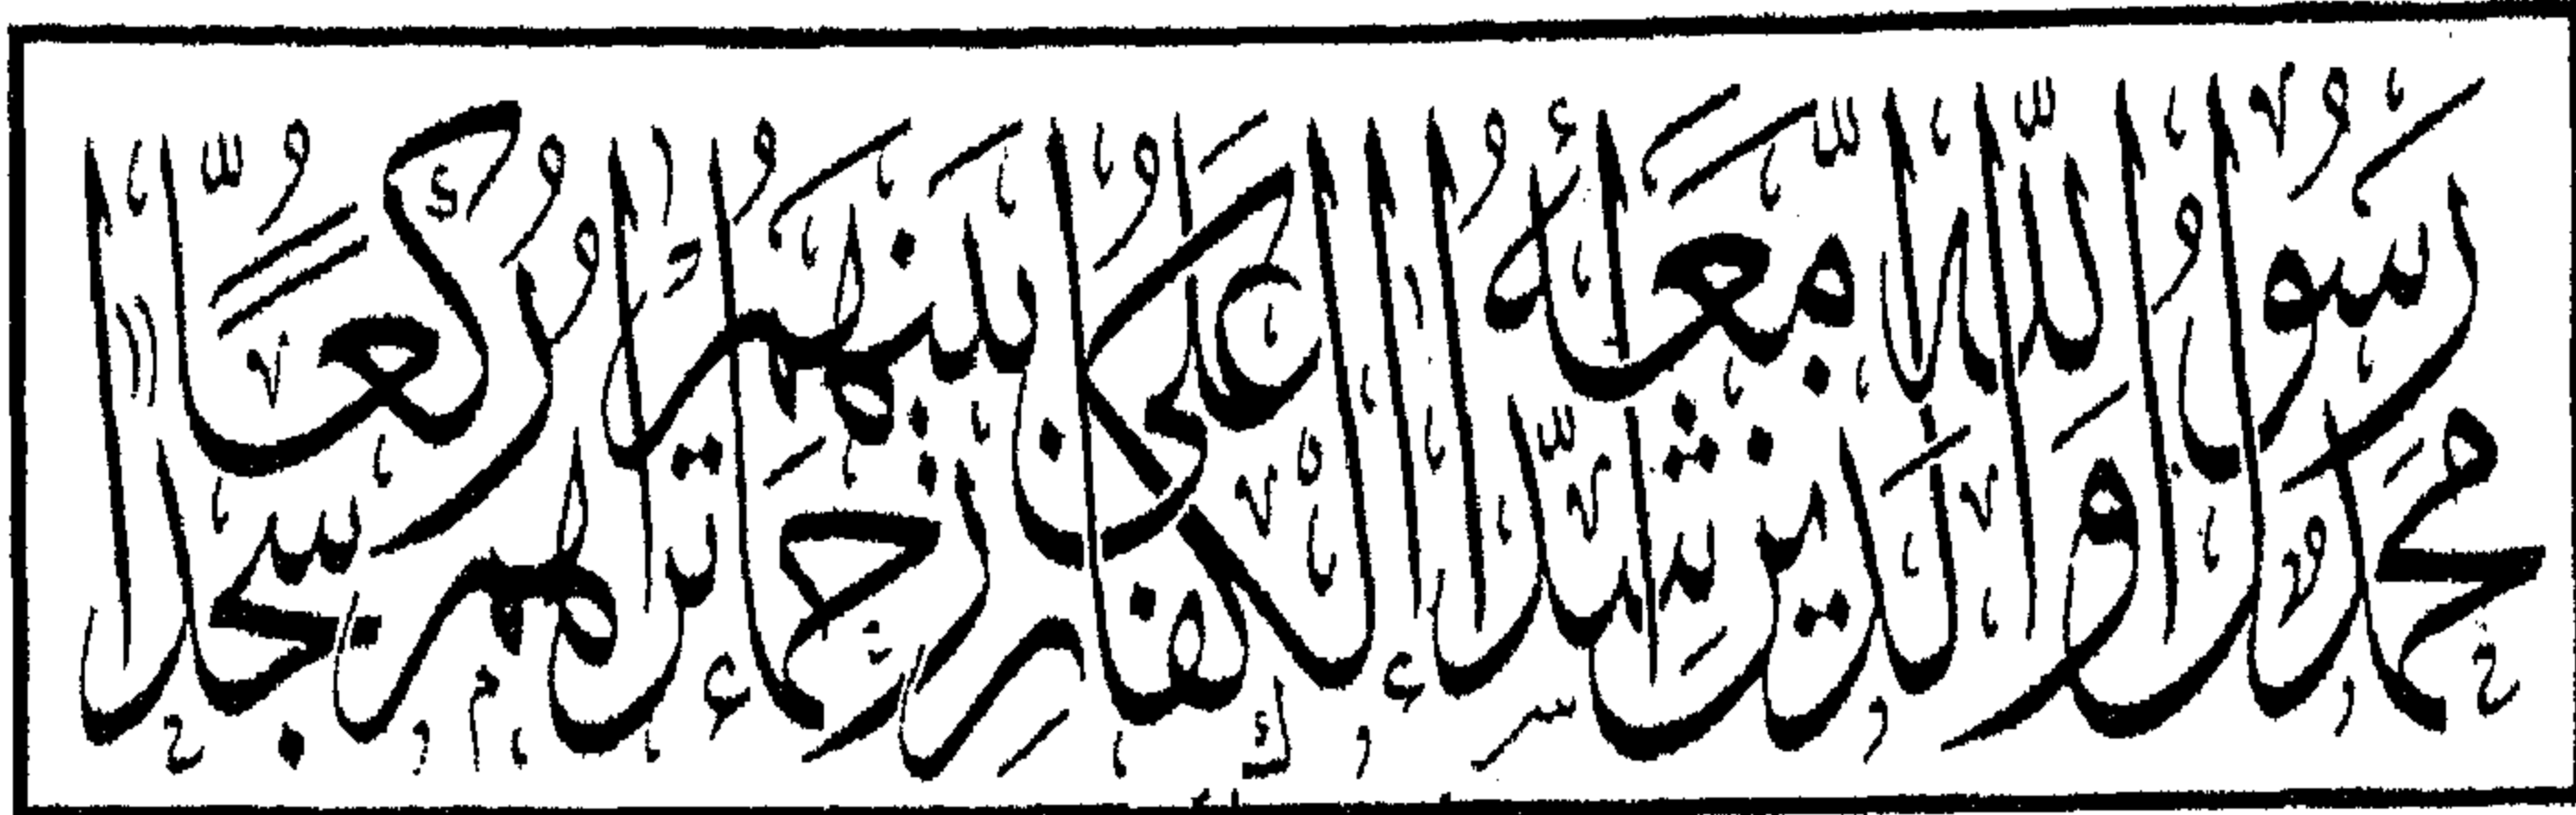 محمد رسول الله والذين معه أشداء على الكفار رحماء بينهم تراهم ركعا سجدا